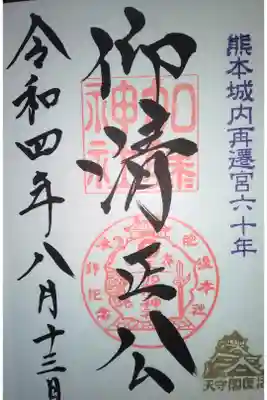 熊本城内再遷宮六十年
仰清正公
加藤神社
令和四年八月十三日
天守閣復活